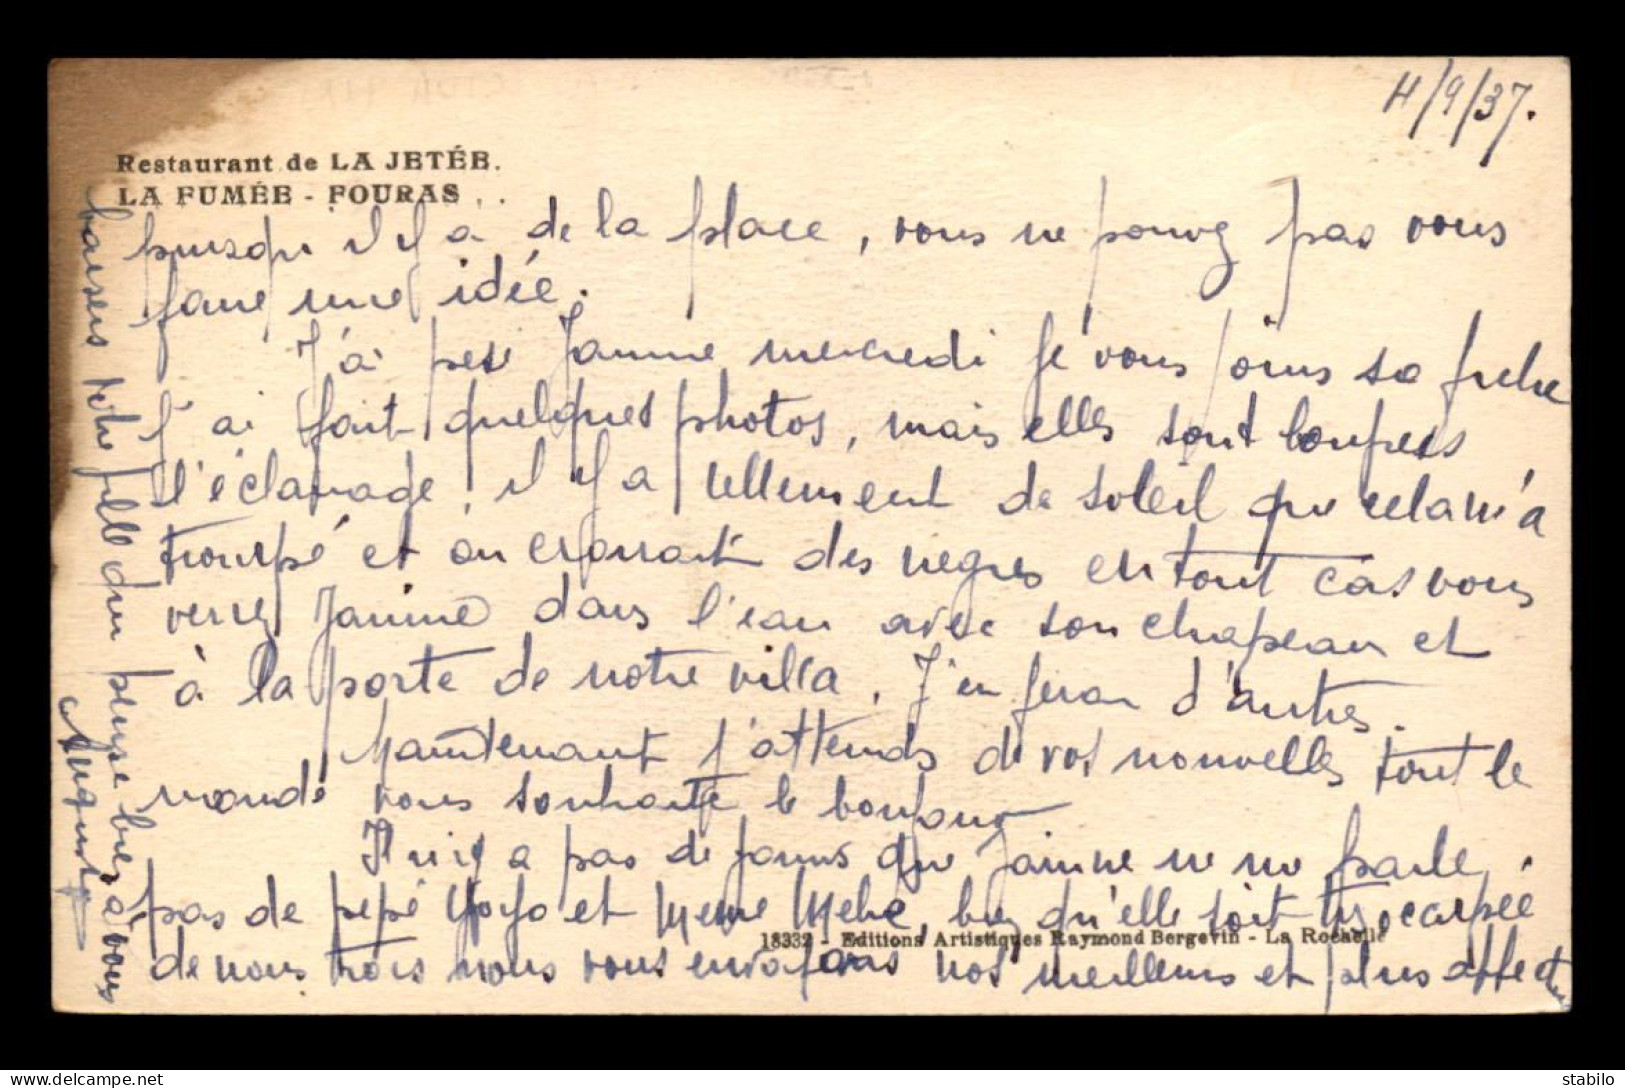 4/9/37.
Restaurant de LA JETÉE.
LA FUMÉE - FOURAS
puisqu'il y a de la place, vous ne pouvez pas vous
faire une idée.
J'ai pesé Janine mercredi je vous joins sa fiche
J'ai fait quelques photos, mais elles sont loupées
l'éclairage, il y a tellement de soleil que cela m'a
trompé et on croirait des negres en tout cas vous
verrez Janine dans l'eau avec son chapeau et
à la porte de notre villa. J'en ferai d'autres.
Maintenant j'attends de vos nouvelles tout le
monde vous souhaite le bonjour
Il n'y a pas de jours que Janine ne me parle
pas de pépé Yoyo et Meme Mehe, bien qu'elle soit très occupée
18332 - Editions Artistiques Raymond Bergevin - La Rochelle
de nous trois nous vous envoyons nos meilleurs et plus affectueux
baisers votre fille qui pense bien à vous